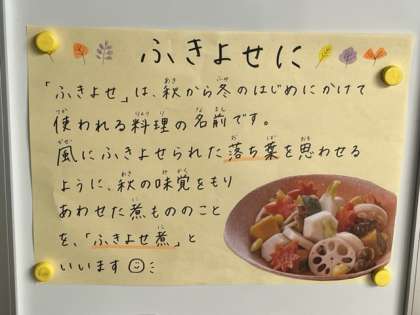 ふきよせに
「ふきよせ」は、秋から冬のはじめにかけて
使われる料理の名前です。
風にふきよせられた落ち葉を思わせる
ように、秋の味覚をもり
あわせた煮もののこと
を、「ふきよせ煮」と
いいます